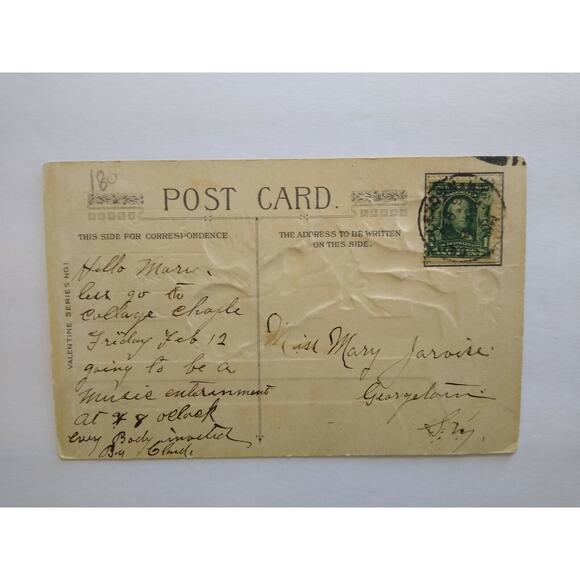 180
POST CARD.
THIS SIDE FOR CORRESPONDENCE
THE ADDRESS TO BE WRITTEN
ON THIS SIDE.
VALENTINE SERIES NO.1
Hello Marie.
less go to
collage chaple
Friday Feb 12
going to be a
music enterainment
at 8 oclock
every Body invited
By Claud.
Miss Mary Jarvise.
Georgetown.